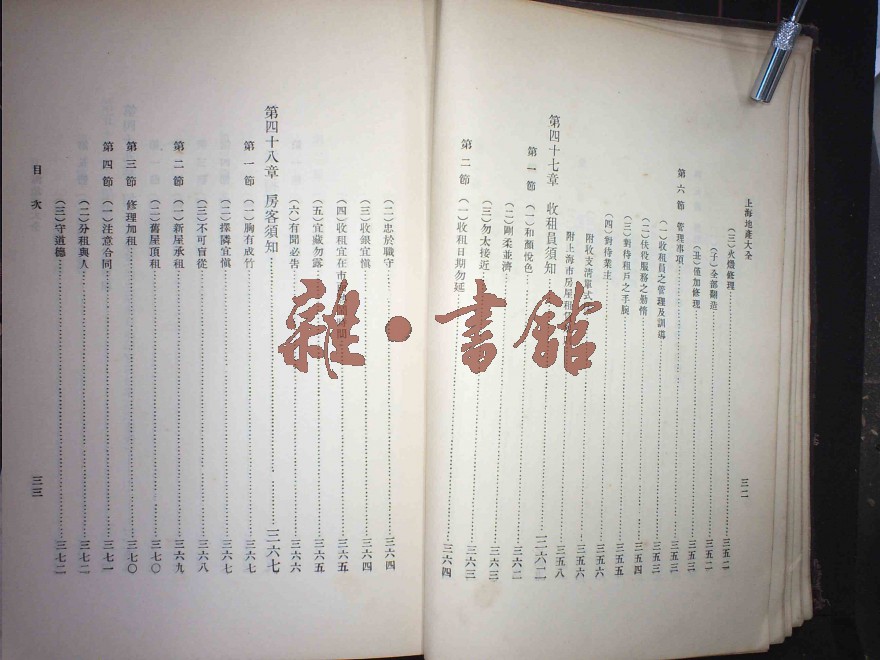 上海地產大全
三二
(三)火燬修理……三五二
(子)全部翻造……三五二
(丑)僅加修理……三五三
第六節 管理事項……三五三
(一)收租員之管理及訓導……三五三
(二)伕役服務之勤惰……三五四
(三)對待租戶之手腕……三五五
(四)對待業主……三五六
附收支清單式……三五六
附上海市房屋租……三五八
第四十七章 收租員須知……三六二
第一節 (一)和顏悅色……三六二
(二)剛柔並濟……三六二
(三)勿太接近……三六三
第二節 (一)收租日期勿延……三六四
(二)忠於職守……三六四
(三)收銀宜慎……三六四
(四)收租宜在市……間……三六五
(五)宜藏勿露……三六五
(六)有聞必告……三六六
第四十八章 房客須知……三六七
第一節 (一)胸有成竹……三六七
(二)擇隣宜愼……三六七
(三)不可盲從……三六八
第二節 (一)新屋承租……三六九
(二)舊屋頂租……三七〇
第三節 修理加租……三七〇
第四節 (一)注意合同……三七一
(二)分租與人……三七二
(三)守道德……三七二
目次
三三
雜·書館